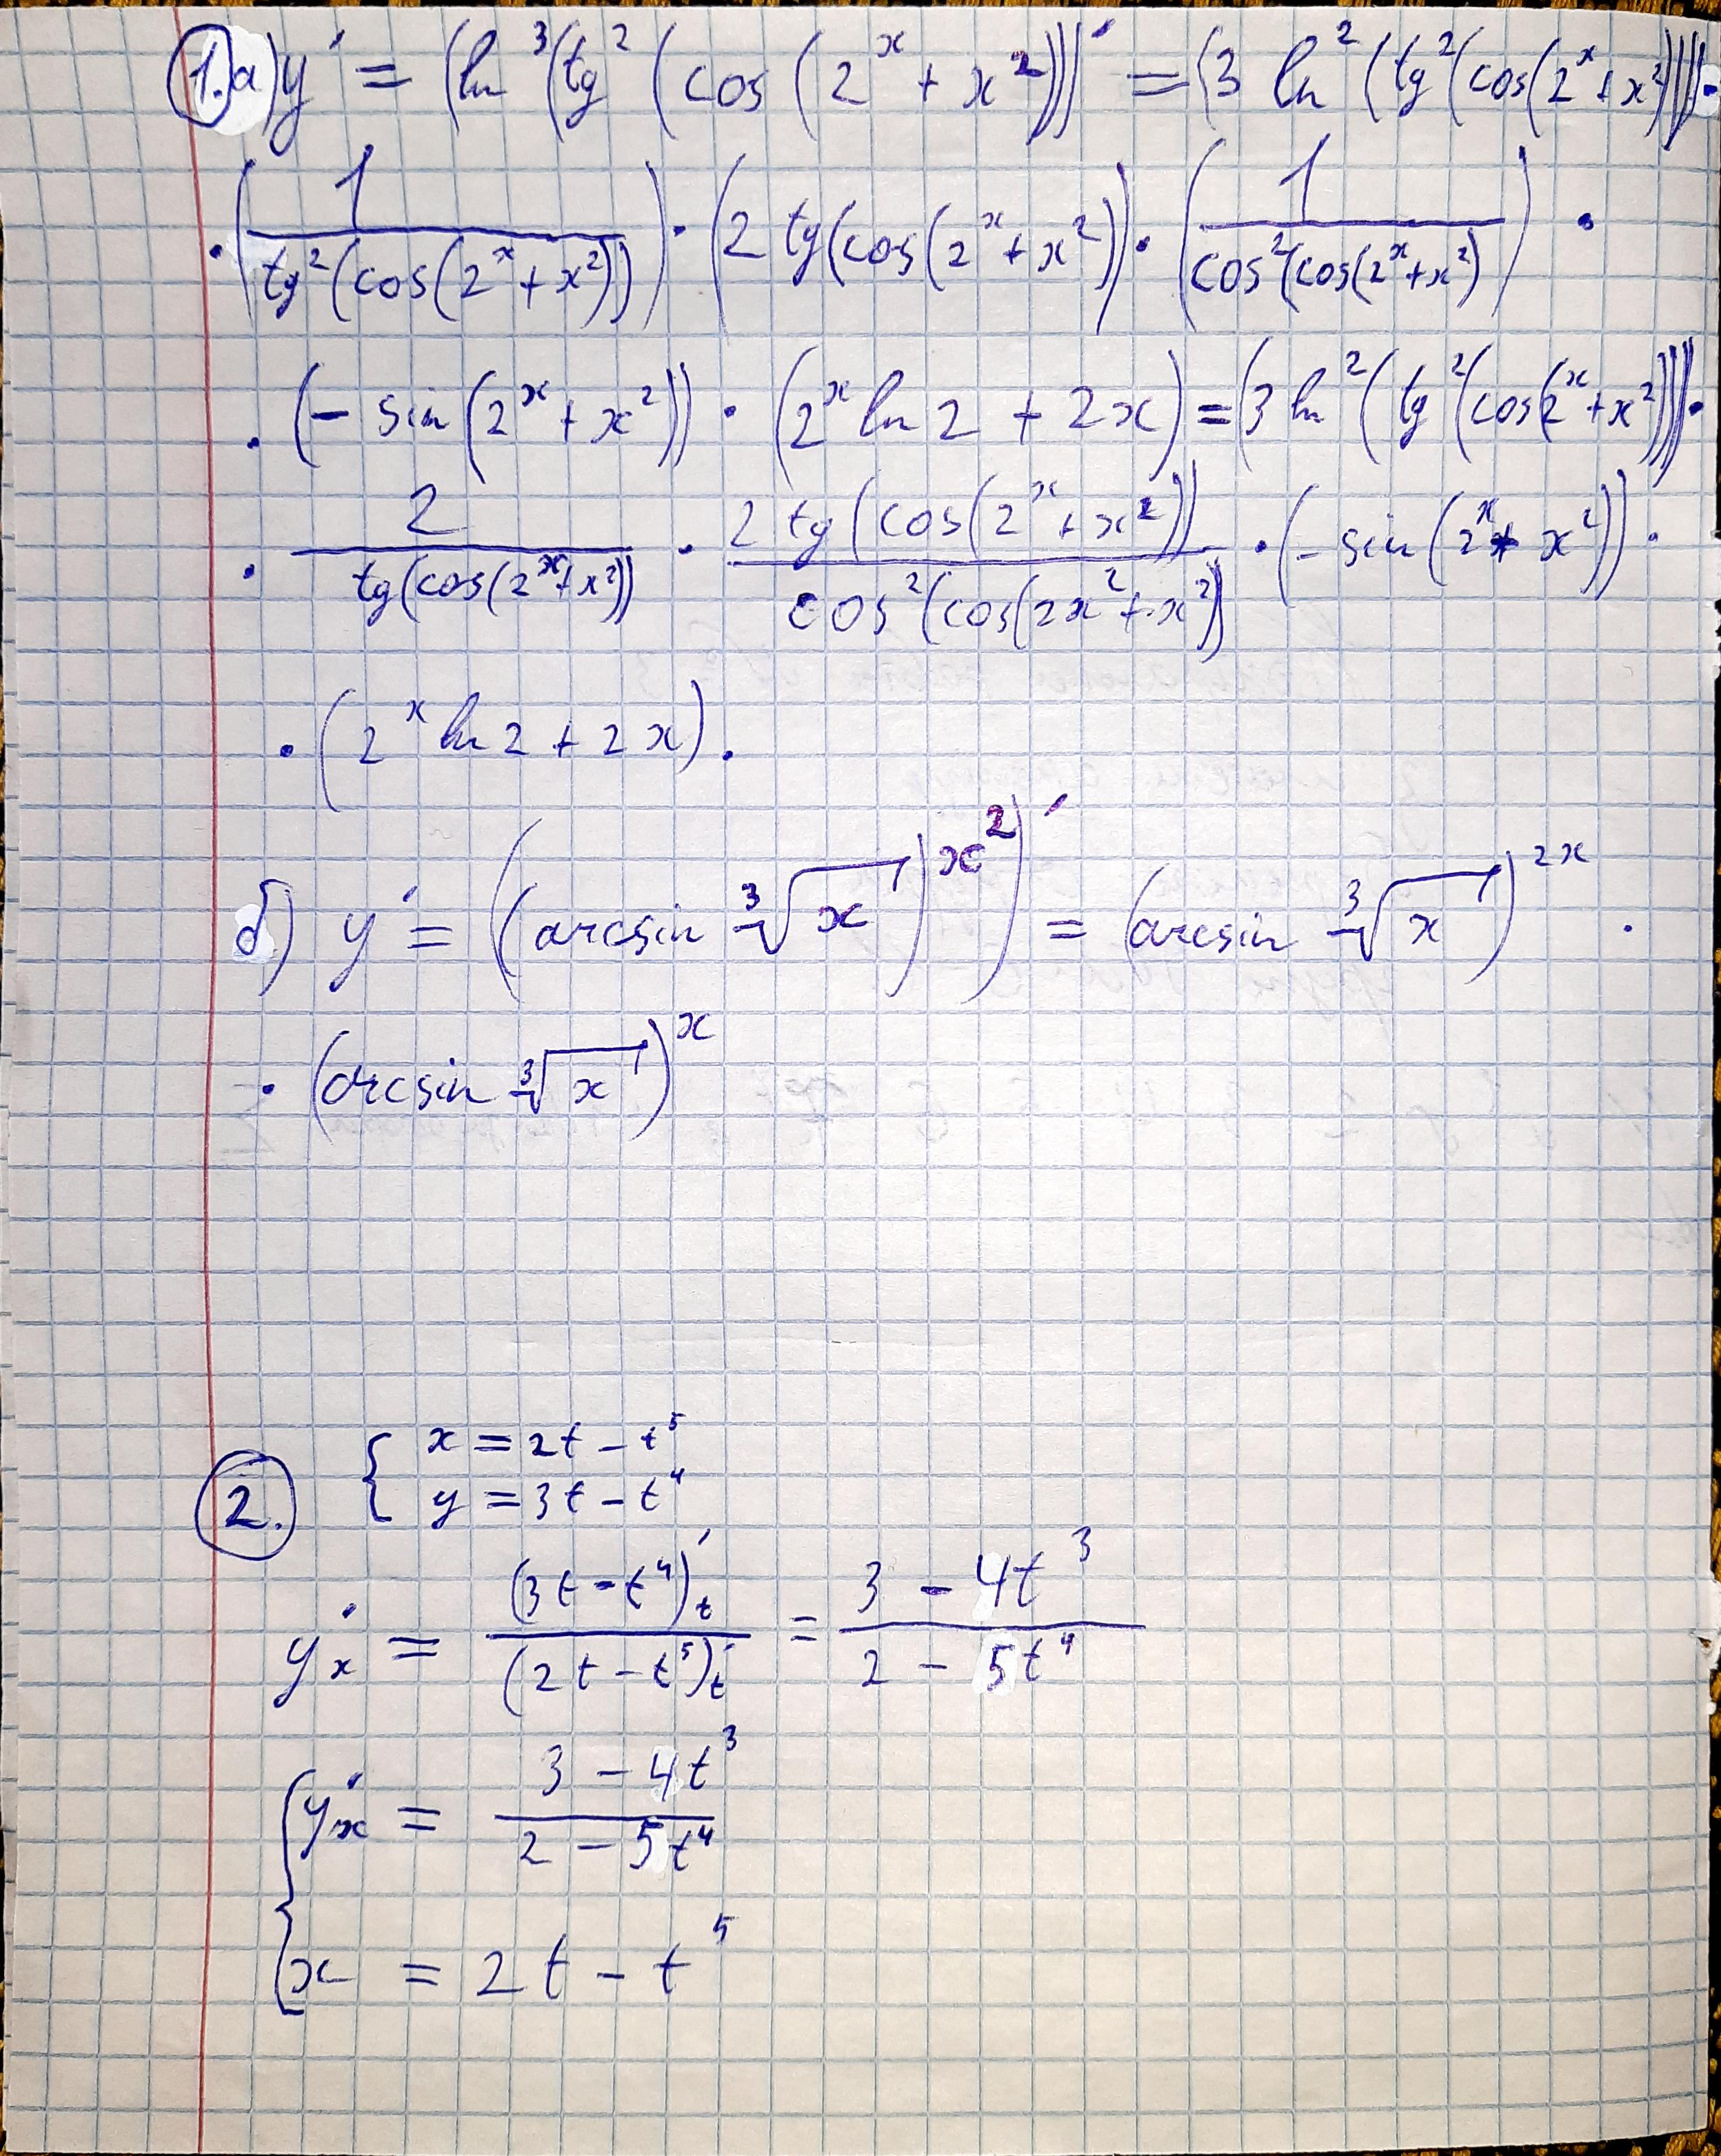 1. а) y' = (ln³(tg²(cos(2ˣ + x²))))' = (3 ln²(tg²(cos(2ˣ + x²)))) ·
· (1 / tg²(cos(2ˣ + x²))) · (2 tg(cos(2ˣ + x²)) · (1 / cos²(cos(2ˣ + x²)) ·
· (- sin(2ˣ + x²)) · (2ˣ ln 2 + 2x) = (3 ln²(tg²(cos(2ˣ + x²)))) ·
· 2 / tg(cos(2ˣ + x²)) · 2 tg(cos(2ˣ + x²)) / cos²(cos(2x² + x²)) · (- sin(2ˣ + x²)) ·
· (2ˣ ln 2 + 2x).
б) y' = ((arcsin ³√x)^x²)' = (arcsin ³√x)^2x ·
· (arcsin ³√x)^x
2. { x = 2t - t⁵
y = 3t - t⁴
y'ₓ = (3t - t⁴)'ₜ / (2t - t⁵)'ₜ = 3 - 4t³ / 2 - 5t⁴
{ y'ₓ = 3 - 4t³ / 2 - 5t⁴
x = 2t - t⁵